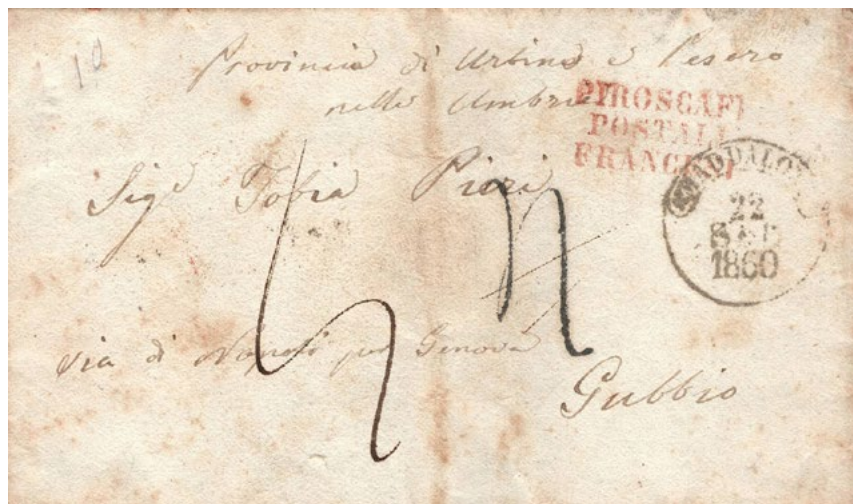 10
Provincia di Urbino e Pesaro
nelle Umbrie
PIROSCAFI
POSTALI
FRANCESI
MADDALONI
22
SET
1860
Sigr Tobia
via di Napoli per Genova
Gubbio